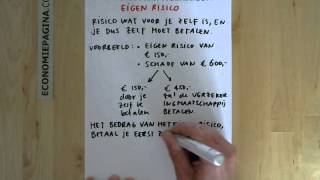 ECONOMIEPAGINA.COM
EIGEN RISICO
RISICO WAT VOOR JE ZELF IS, EN
JE DUS ZELF MOET BETALEN.
VOORBEELD: • EIGEN RISICO VAN
€ 150,-
• SCHADE VAN € 600,-
€ 150,-
door je
zelf te
betalen
€ 450,-
zal de VERZEKER
INGMAATSCHAPPIJ
BETALEN
HET BEDRAG VAN HET RISICO,
BETAAL JE EERST